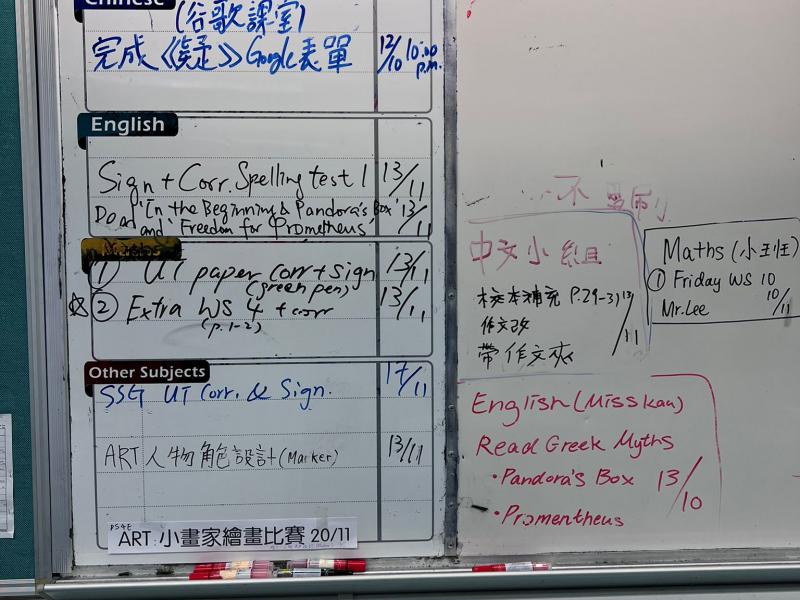 Chinese
(谷歌課室)
完成《疑》Google表單 12/10 10:00 p.m.
English
Sign + Corr. Spelling test 1 13/11
Read "In the Beginning & Pandora's Box" 13/11
and "Freedom for Prometheus"
① UT paper corr + sign 13/11
(green pen)
☆ ② Extra WS 4 + corr 13/11
(p.1-2)
Other Subjects
SSG UT Corr. & Sign. 17/11
ART 人物角色設計 (Marker) 13/11
ART: 小畫家繪畫比賽 20/11
不
中文小組
校本補充 P.29-31 13/11
作文改
帶作文夾
Maths (小班)
① Friday WS 10
Mr. Lee 10/11
English (Miss Kau)
Read Greek Myths
• Pandora's Box 13/10
• Promentheus